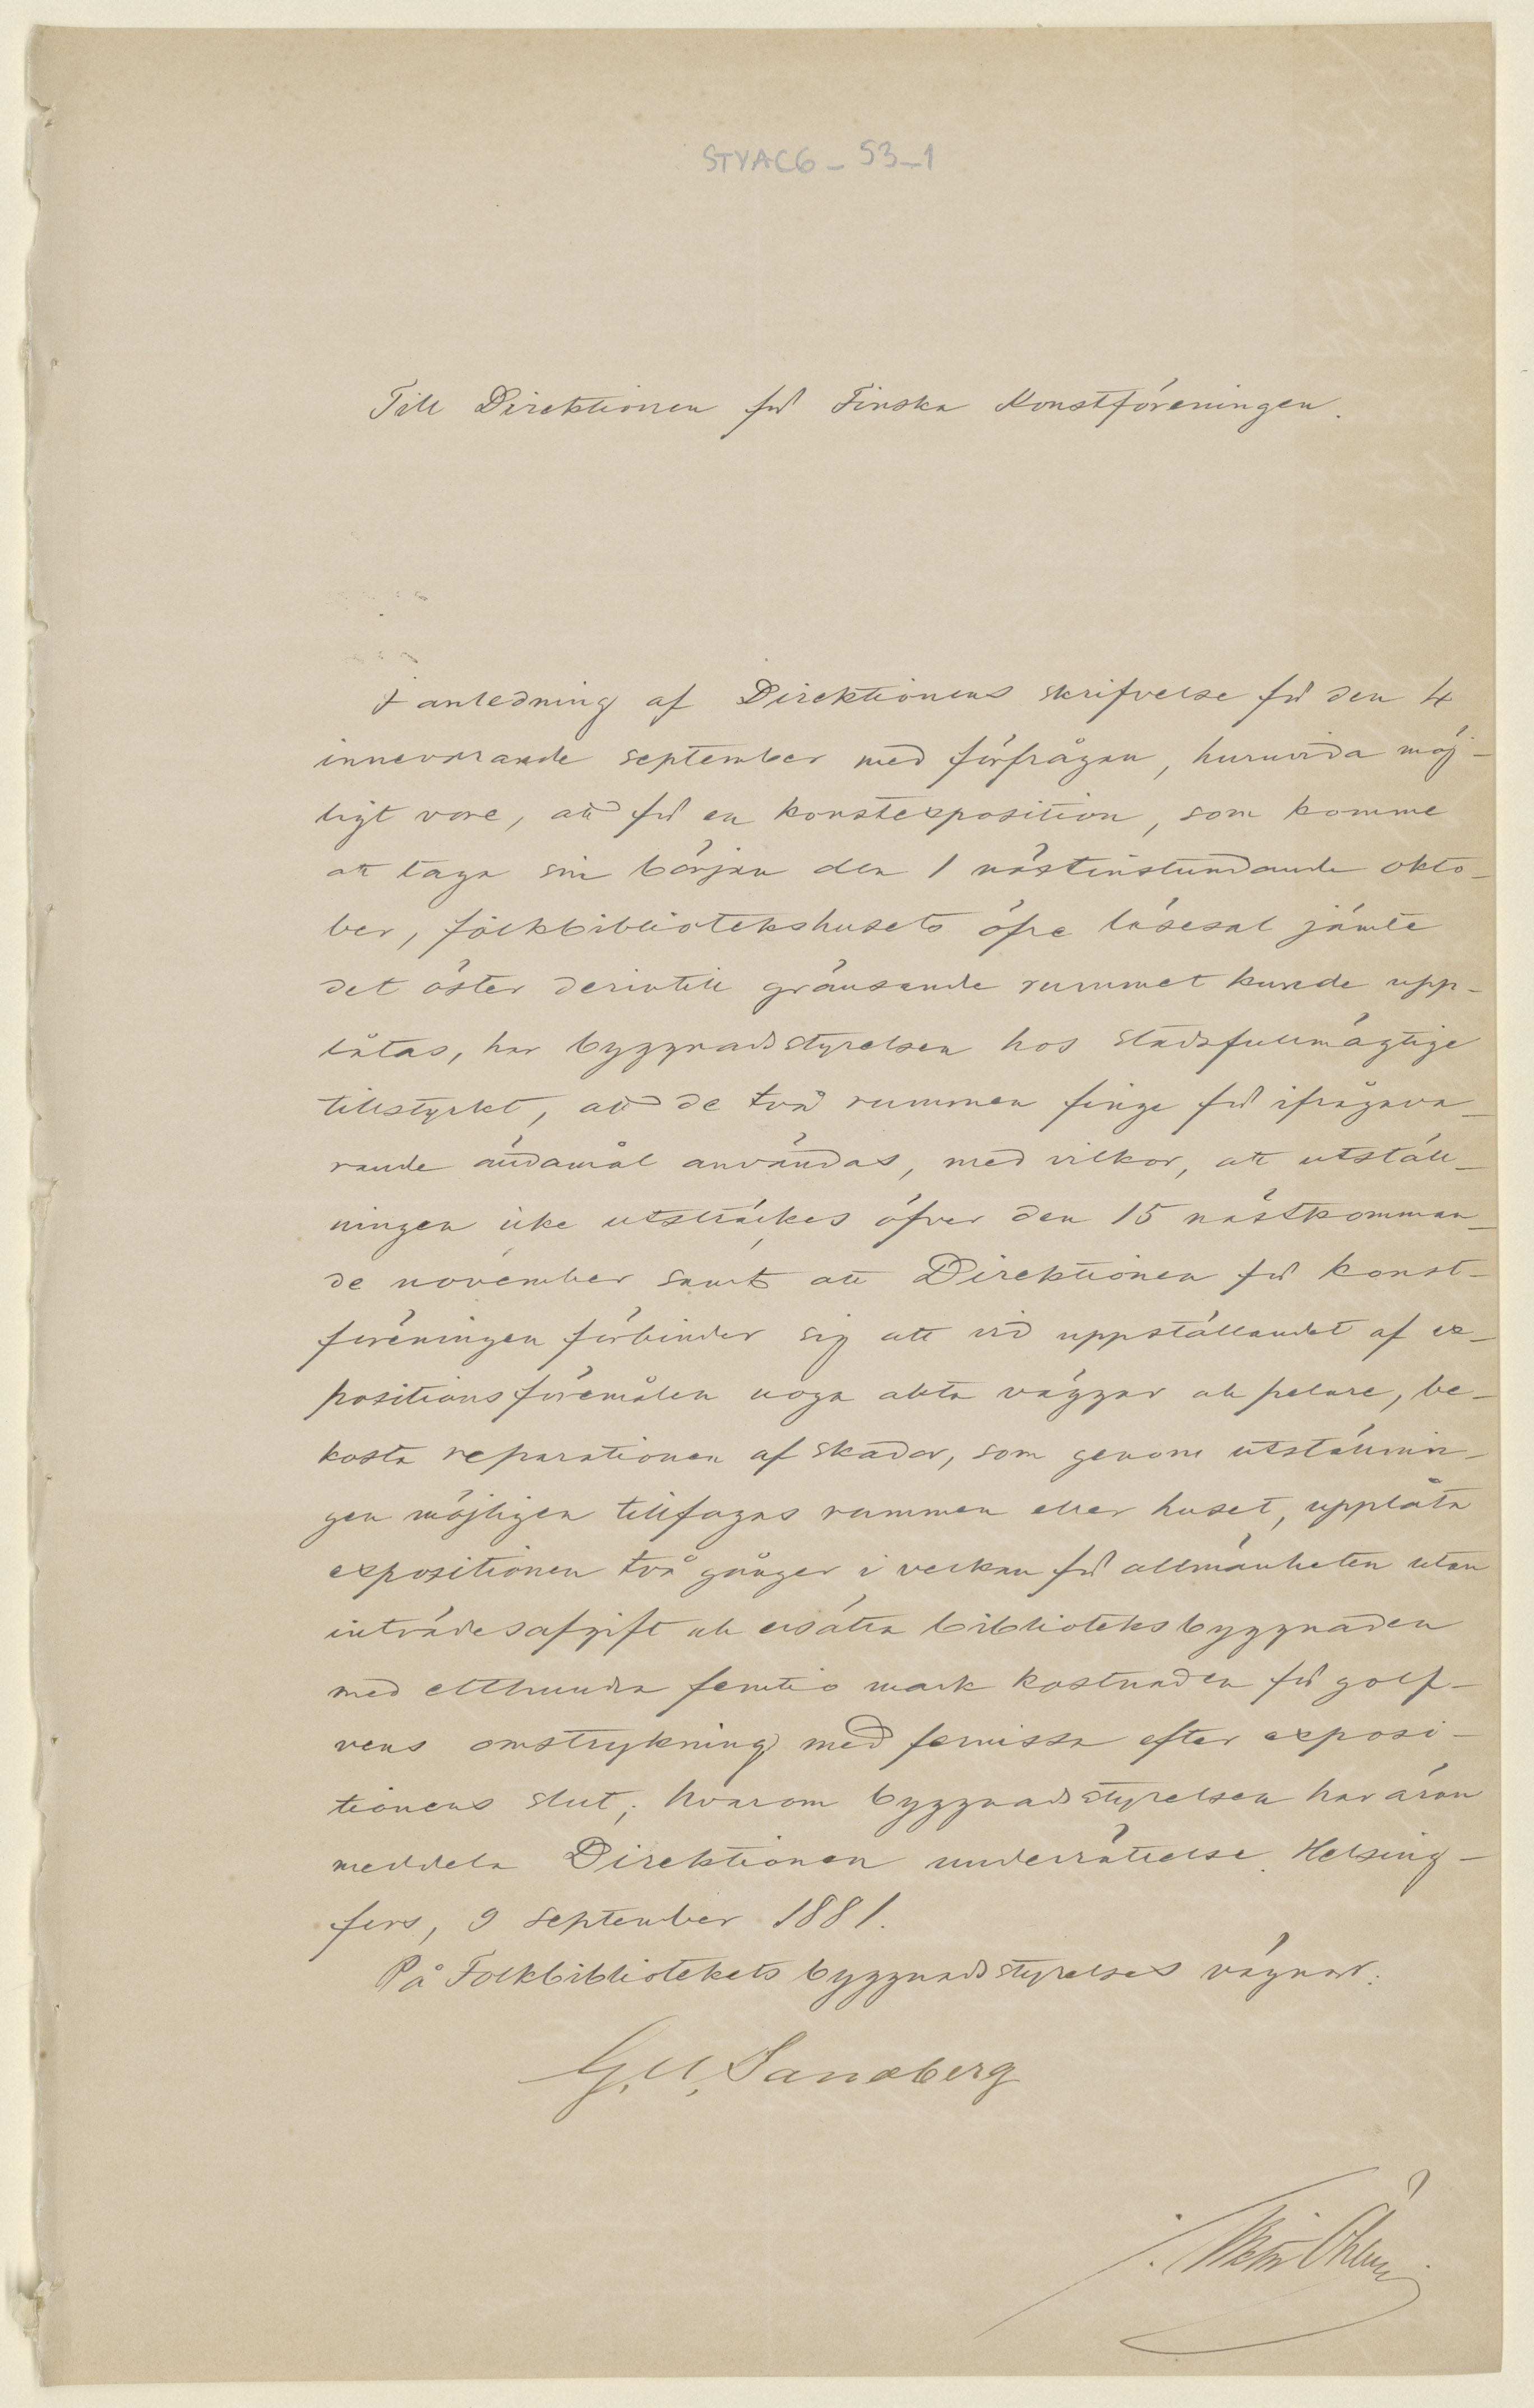 STYAC6-53-1
Till Direktionen för Finska Konstföreningen.
I anledning af Direktionens skrifvelse för den 4
innevarande september med förfrågan, huruvida möj-
ligt vore, att för en konstexposition, som komme
att taga sin början den 1 nästinstundande okto-
ber, folkbibliotekshusets öfre läsesal jämte
det öster derintill gränsande rummet kunde upp-
låtas, har byggnadsstyrelsen hos stadsfullmägtige
tillstyrkt, att de två rummen finge för ifrågava-
rande ändamål användas, med vilkor, att utställ-
ningen icke utsträckes öfver den 15 nästkomman-
de november samt att Direktionen för konst-
föreningen förbinder sig att vid uppställandet af ex-
positionsföremålen noga akta väggar och pelare, be-
kosta reparationen af skador, som genom utställnin-
gen möjligen tillfogas rummen eller huset, upplåta
expositionen två gånger i veckan för allmänheten utan
inträdesafgift och ersätta biblioteksbyggnaden
med etthundra femtio mark kostnaden för golf-
vens omstrykning med fernissa efter exposi-
tionens slut; hvarom byggnadsstyrelsen har äran
meddela Direktionen underrättelse. Helsing-
fors, 9 september 1881.
På Folkbibliotekets byggnadsstyrelses vägnar:
G. U. Sandberg
J.